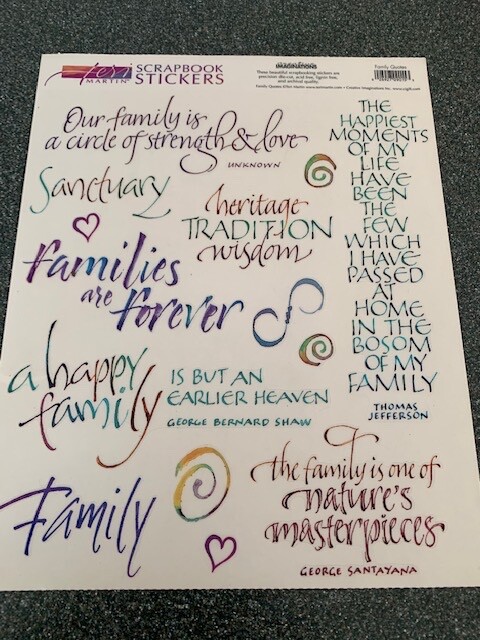 teri MARTIN SCRAPBOOK
STICKERS
IMAGINATIONS
These beautiful scrapbooking stickers are
precision die-cut, acid free, lignin free,
and archival quality.
Family Quotes
Our family is
a circle of strength & love
UNKNOWN
Sanctuary
heritage
TRADITION
wisdom
families
are forever
a happy
family
IS BUT AN
EARLIER HEAVEN
GEORGE BERNARD SHAW
Family
the family is one of
nature's
masterpieces
GEORGE SANTAYANA
THE
HAPPIEST
MOMENTS
OF MY
LIFE
HAVE
BEEN
THE
FEW
WHICH
I HAVE
PASSED
AT
HOME
IN THE
BOSOM
OF MY
FAMILY
THOMAS
JEFFERSON